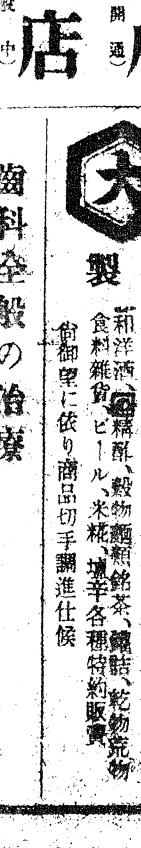 開通)
店
中)
大
製
和洋酒、精酢、穀物麵類銘茶、罐詰、乾物荒物
食料雜貨、ビール、米糀、塩辛各種特約販賣
尙御望に依り商品切手調進仕候
齒科全般の治療